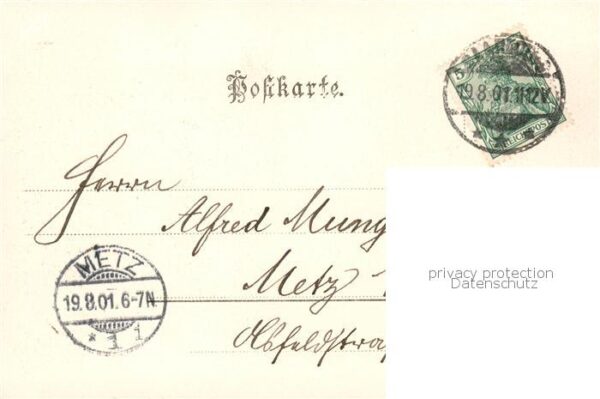 Postkarte.
19.8.01.11-12V.
REICHSPOST
Herrn
Alfred Mung
Metz
METZ
19.8.01.6-7N.
* 1 1
privacy protection
Datenschutz